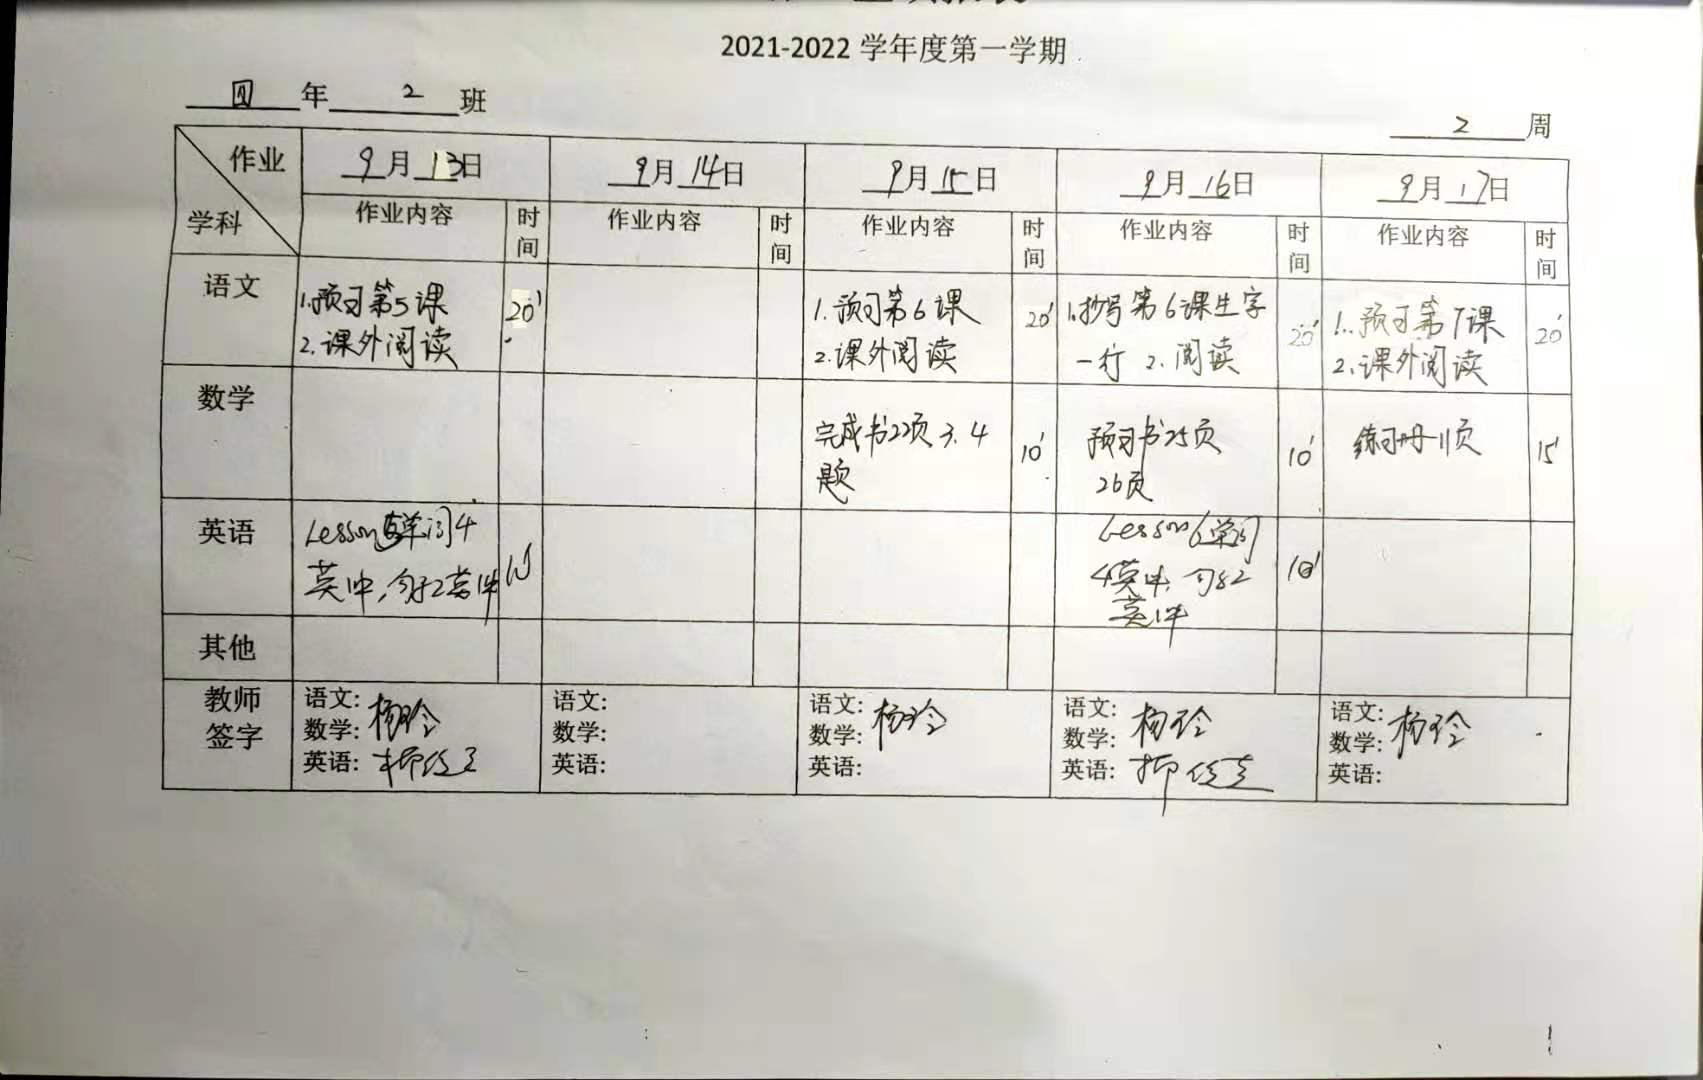 2021-2022 学年度第一学期
四 年 2 班
2 周
作业
学科
9月13日
9月14日
9月15日
9月16日
9月17日
作业内容
时间
作业内容
时间
作业内容
时间
作业内容
时间
作业内容
时间
语文
1.预习第5课
2.课外阅读
20'
1.预习第6课
2.课外阅读
20'
1.抄写第6课生字
一行 2.阅读
20'
1.预习第7课
2.课外阅读
20'
数学
完成书22页3.4
题
10'
预习书25页
26页
10'
练习册11页
15'
英语
Lesson5单词4
英1中,句子2英1中
10'
Lesson6单词
4英1中,句子2
英1中
10'
其他
教师
签字
语文:
数学: 杨玲
英语:
语文:
数学:
英语:
语文:
数学: 杨玲
英语:
语文:
数学: 杨玲
英语:
语文:
数学: 杨玲
英语: